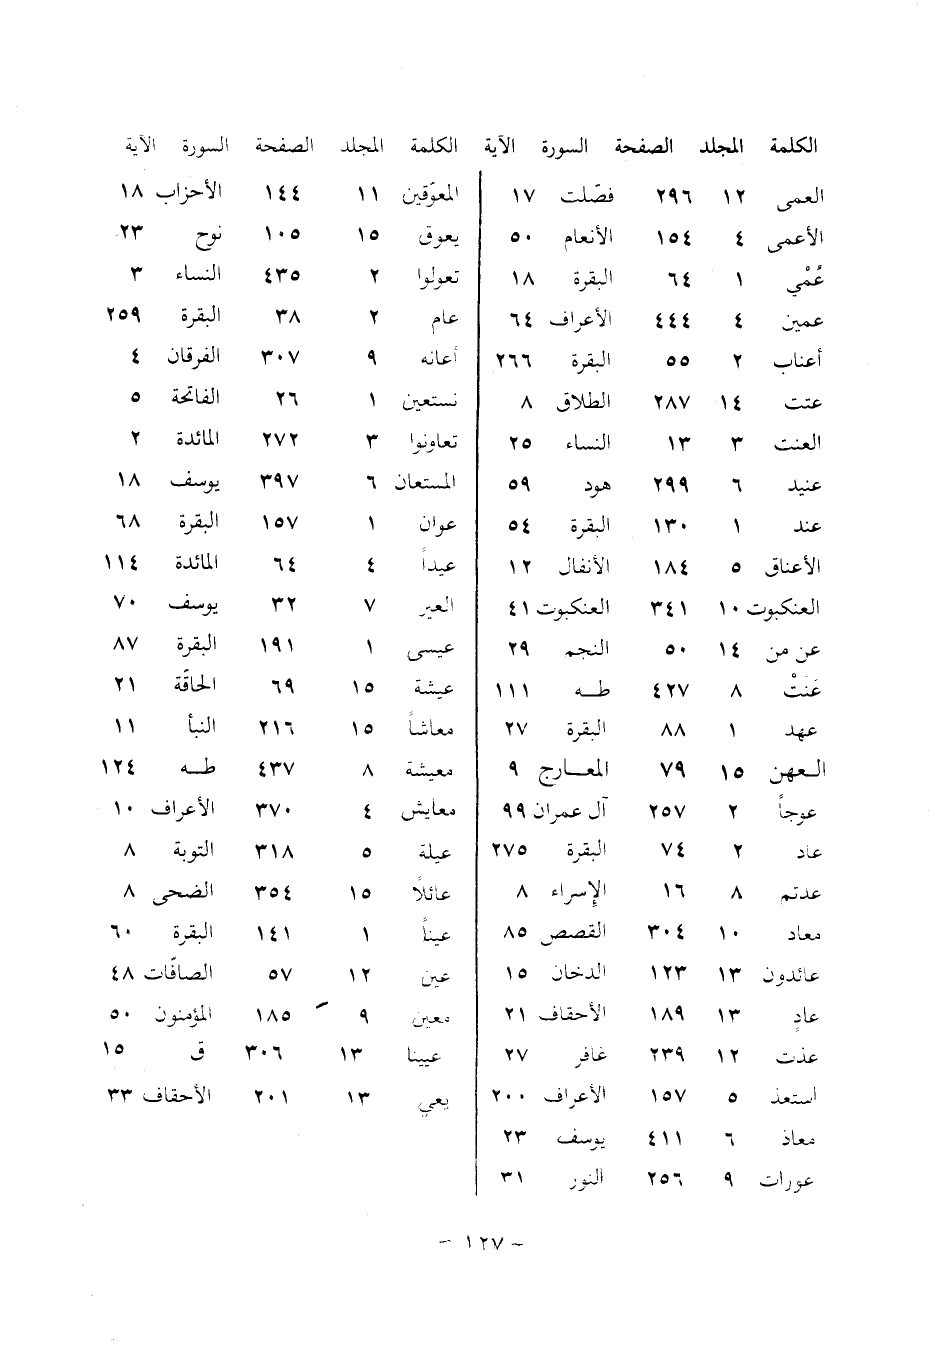 الكلمة المجلد الصفحة السورة الآية
العمى ١٢ ٢٩٦ فصّلت ١٧
الأعمى ٤ ١٥٤ الأنعام ٥٠
عُمْي ١ ٦٤ البقرة ١٨
عمين ٤ ٤٤٤ الأعراف ٦٤
أعناب ٢ ٥٥ البقرة ٢٦٦
عتت ١٤ ٢٨٧ الطلاق ٨
العنت ٣ ١٣ النساء ٢٥
عنيد ٦ ٢٩٩ هود ٥٩
عند ١ ١٣٠ البقرة ٥٤
الأعناق ٥ ١٨٤ الأنفال ١٢
العنكبوت ١٠ ٣٤١ العنكبوت ٤١
عن من ١٤ ٥٠ النجم ٢٩
عَنَتْ ٨ ٤٢٧ طه ١١١
عهد ١ ٨٨ البقرة ٢٧
العهن ١٥ ٧٩ المعارج ٩
عوجاً ٢ ٢٥٧ آل عمران ٩٩
عاد ٢ ٧٤ البقرة ٢٧٥
عدتم ٨ ١٦ الإسراء ٨
معاد ١٠ ٣٠٤ القصص ٨٥
عائدون ١٣ ١٢٣ الدخان ١٥
عادٍ ١٣ ١٨٩ الأحقاف ٢١
عذت ١٢ ٢٣٩ غافر ٢٧
استعذ ٥ ١٥٧ الأعراف ٢٠٠
معاذ ٦ ٤١١ يوسف ٢٣
عورات ٩ ٢٥٦ النور ٣١
الكلمة المجلد الصفحة السورة الآية
المعوّقين ١١ ١٤٤ الأحزاب ١٨
يعوق ١٥ ١٠٥ نوح ٢٣
تعولوا ٢ ٤٣٥ النساء ٣
عام ٢ ٣٨ البقرة ٢٥٩
أعانه ٩ ٣٠٧ الفرقان ٤
نستعين ١ ٢٦ الفاتحة ٥
تعاونوا ٣ ٢٧٢ المائدة ٢
المستعان ٦ ٣٩٧ يوسف ١٨
عوان ١ ١٥٧ البقرة ٦٨
عيداً ٤ ٦٤ المائدة ١١٤
العير ٧ ٣٢ يوسف ٧٠
عيسى ١ ١٩١ البقرة ٨٧
عيشة ١٥ ٦٩ الحاقّة ٢١
معاشاً ١٥ ٢١٦ النبأ ١١
معيشة ٨ ٤٣٧ طه ١٢٤
معايش ٤ ٣٧٠ الأعراف ١٠
عيلة ٥ ٣١٨ التوبة ٨
عائلًا ١٥ ٣٥٤ الضحى ٨
عيناً ١ ١٤١ البقرة ٦٠
عين ١٢ ٥٧ الصافّات ٤٨
معين ٩ ١٨٥ المؤمنون ٥٠
عيينا ١٣ ٣٠٦ ق ١٥
يعي ١٣ ٢٠١ الأحقاف ٣٣
- ١٢٧ -